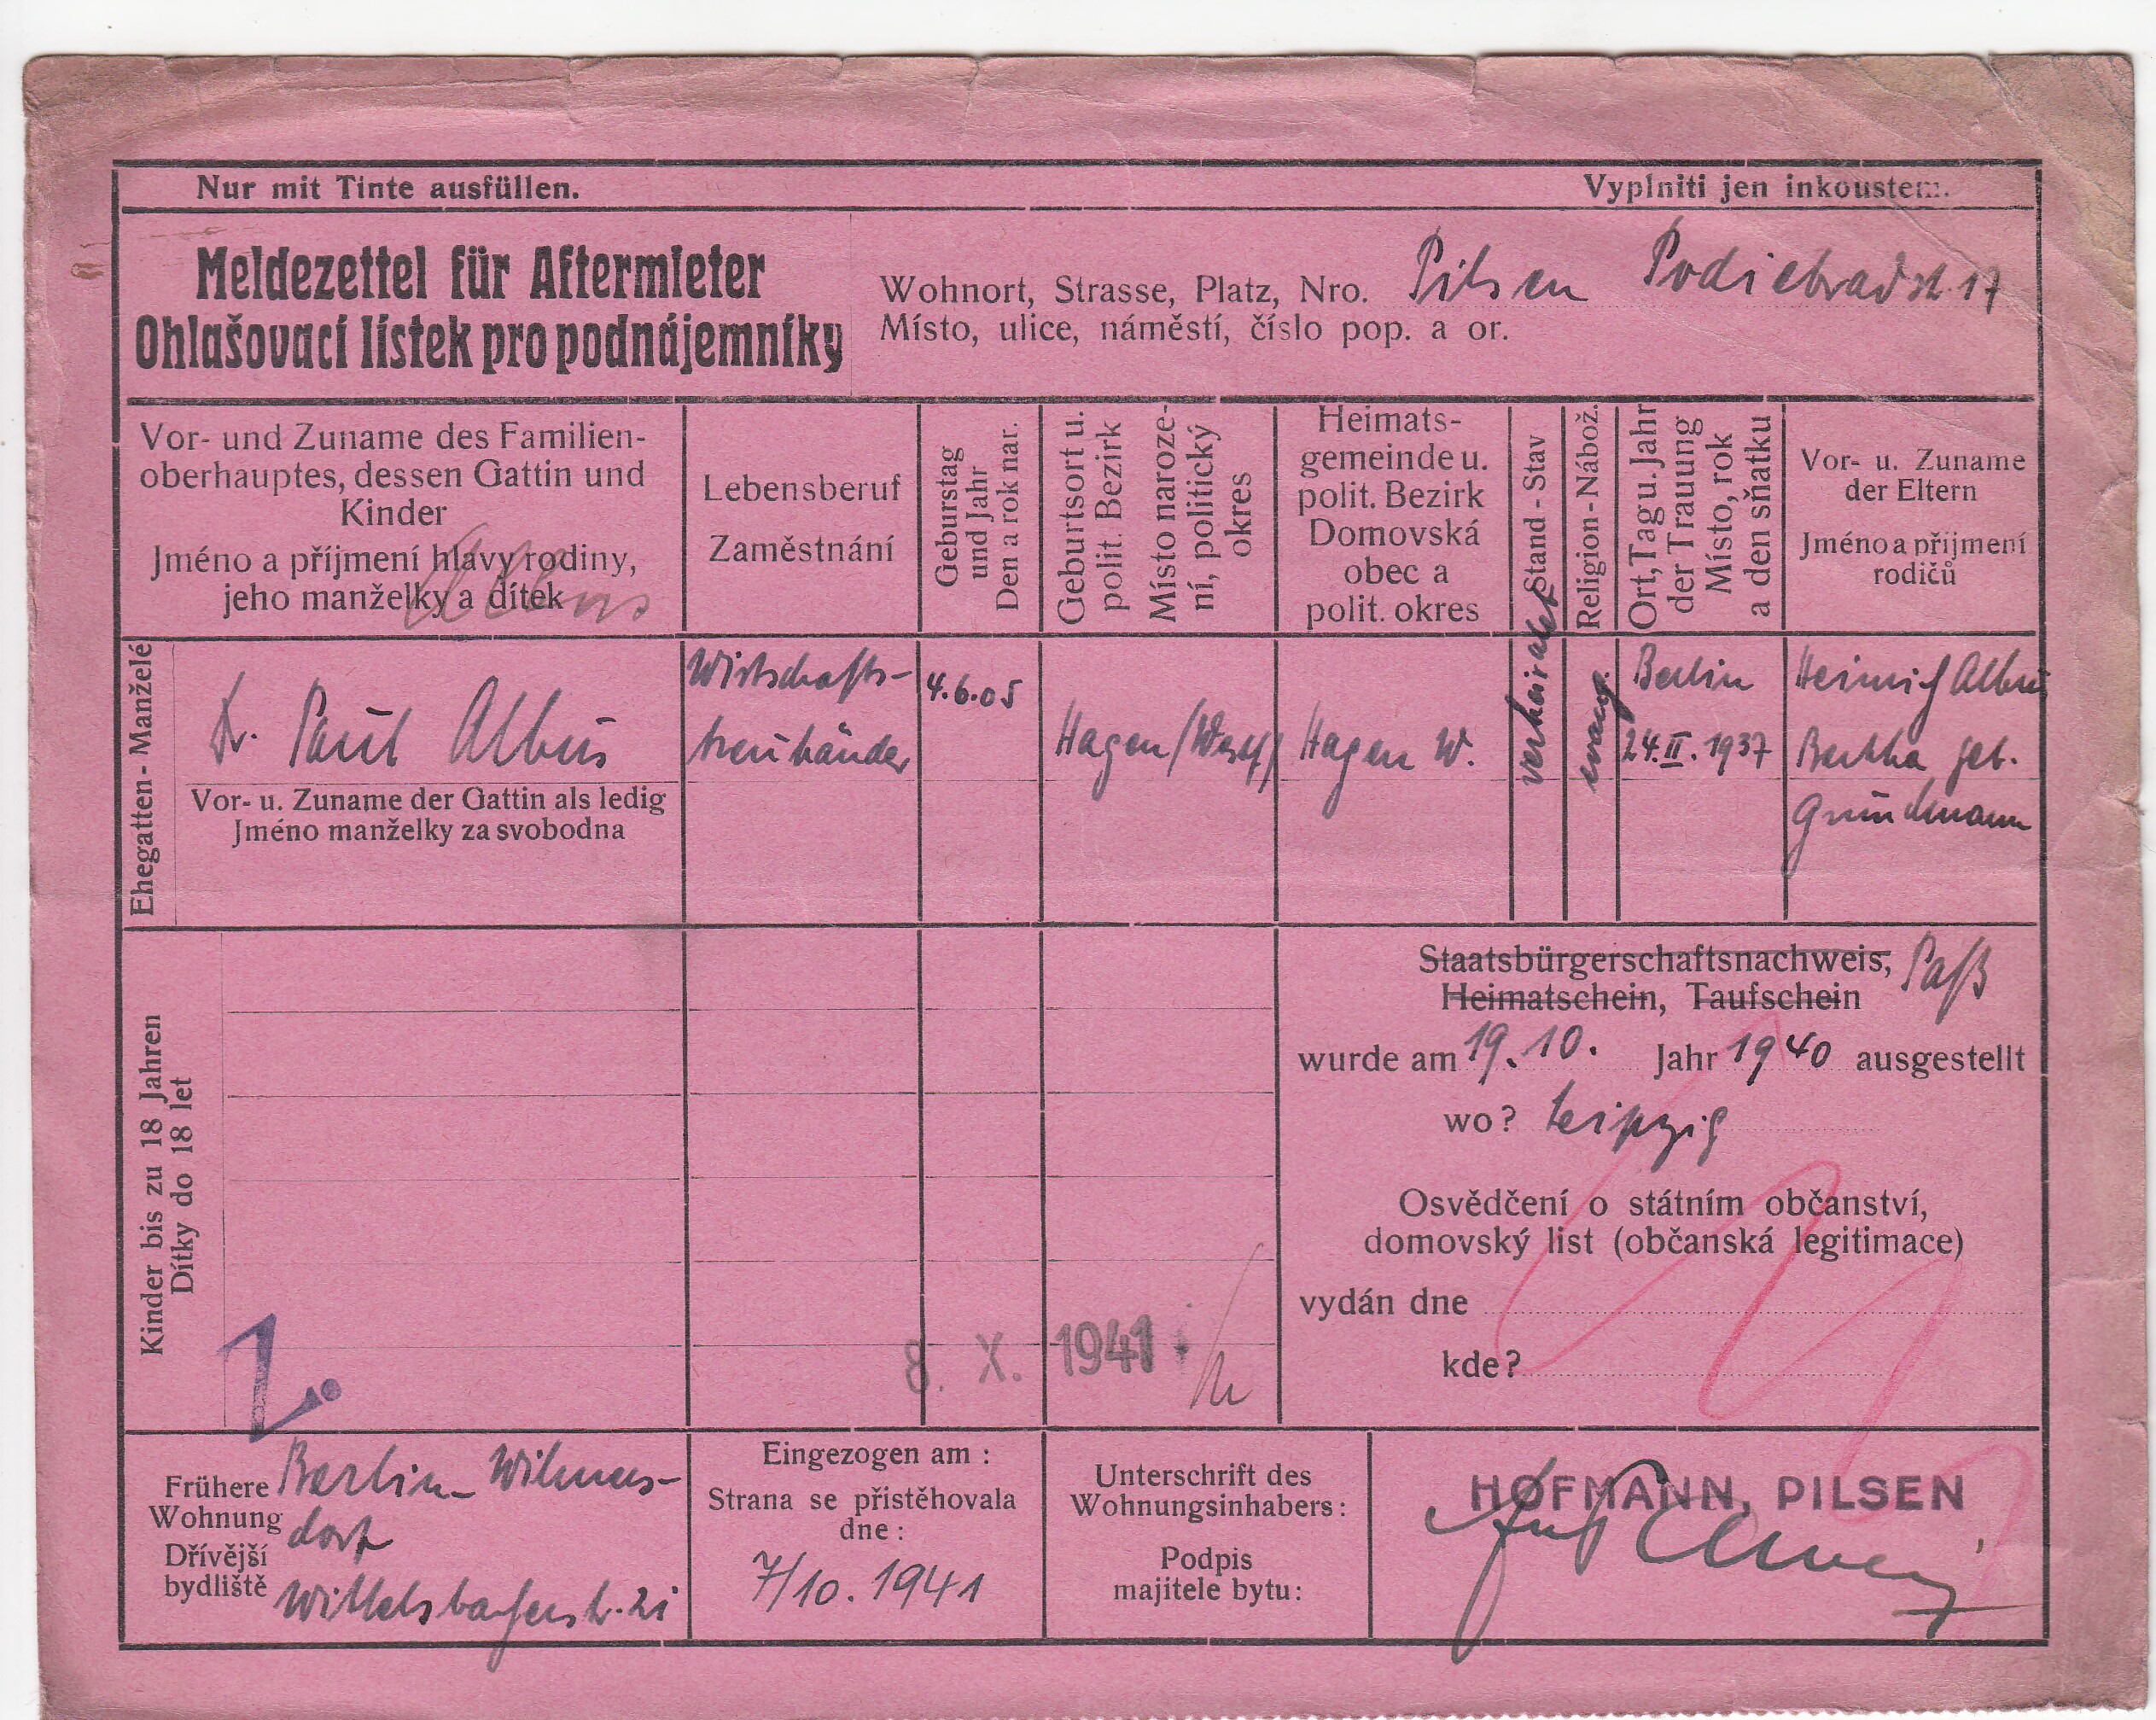 Nur mit Tinte ausfüllen.
Vyplniti jen inkoustem.
Meldezettel für Aftermieter
Ohlašovací lístek pro podnájemníky
Wohnort, Strasse, Platz, Nro. Pilsen Podiebradstr. 17
Místo, ulice, náměstí, číslo pop. a or.
Vor- und Zuname des Familien-
oberhauptes, dessen Gattin und
Kinder
Jméno a příjmení hlavy rodiny,
jeho manželky a dítek
Albus
Lebensberuf
Zaměstnání
Geburstag
und Jahr
Den a rok nar.
Geburtsort u.
polit. Bezirk
Místo naroze-
ní, politický
okres
Heimats-
gemeinde u.
polit. Bezirk
Domovská
obec a
polit. okres
Stand - Stav
Religion - Nábož.
Ort, Tag u. Jahr
der Trauung
Místo, rok
a den sňatku
Vor- u. Zuname
der Eltern
Jméno a přijmení
rodičů
Ehegatten - Manželé
Dr. Paul Albus
Vor- u. Zuname der Gattin als ledig
Jméno manželky za svobodna
Wirtschafts-
treuhänder
4.6.05
Hagen/Westf/
Hagen W.
verheiratet
evang.
Berlin
24.II.1937
Heinrich Albus
Bertha geb.
Grundmann
Kinder bis zu 18 Jahren
Dítky do 18 let
8. X. 1941
Staatsbürgerschaftsnachweis, Paß
Heimatschein, Taufschein
wurde am 19.10. Jahr 1940 ausgestellt
wo? Leipzig
Osvědčení o státním občanství,
domovský list (občanská legitimace)
vydán dne
kde?
Frühere
Wohnung
Dřívější
bydliště
Berlin-Wilmers-
dorf
Wittelsbacherstr. 21
Eingezogen am :
Strana se přistěhovala
dne :
7/10. 1941
Unterschrift des
Wohnungsinhabers :
Podpis
majitele bytu :
HOFMANN, PILSEN